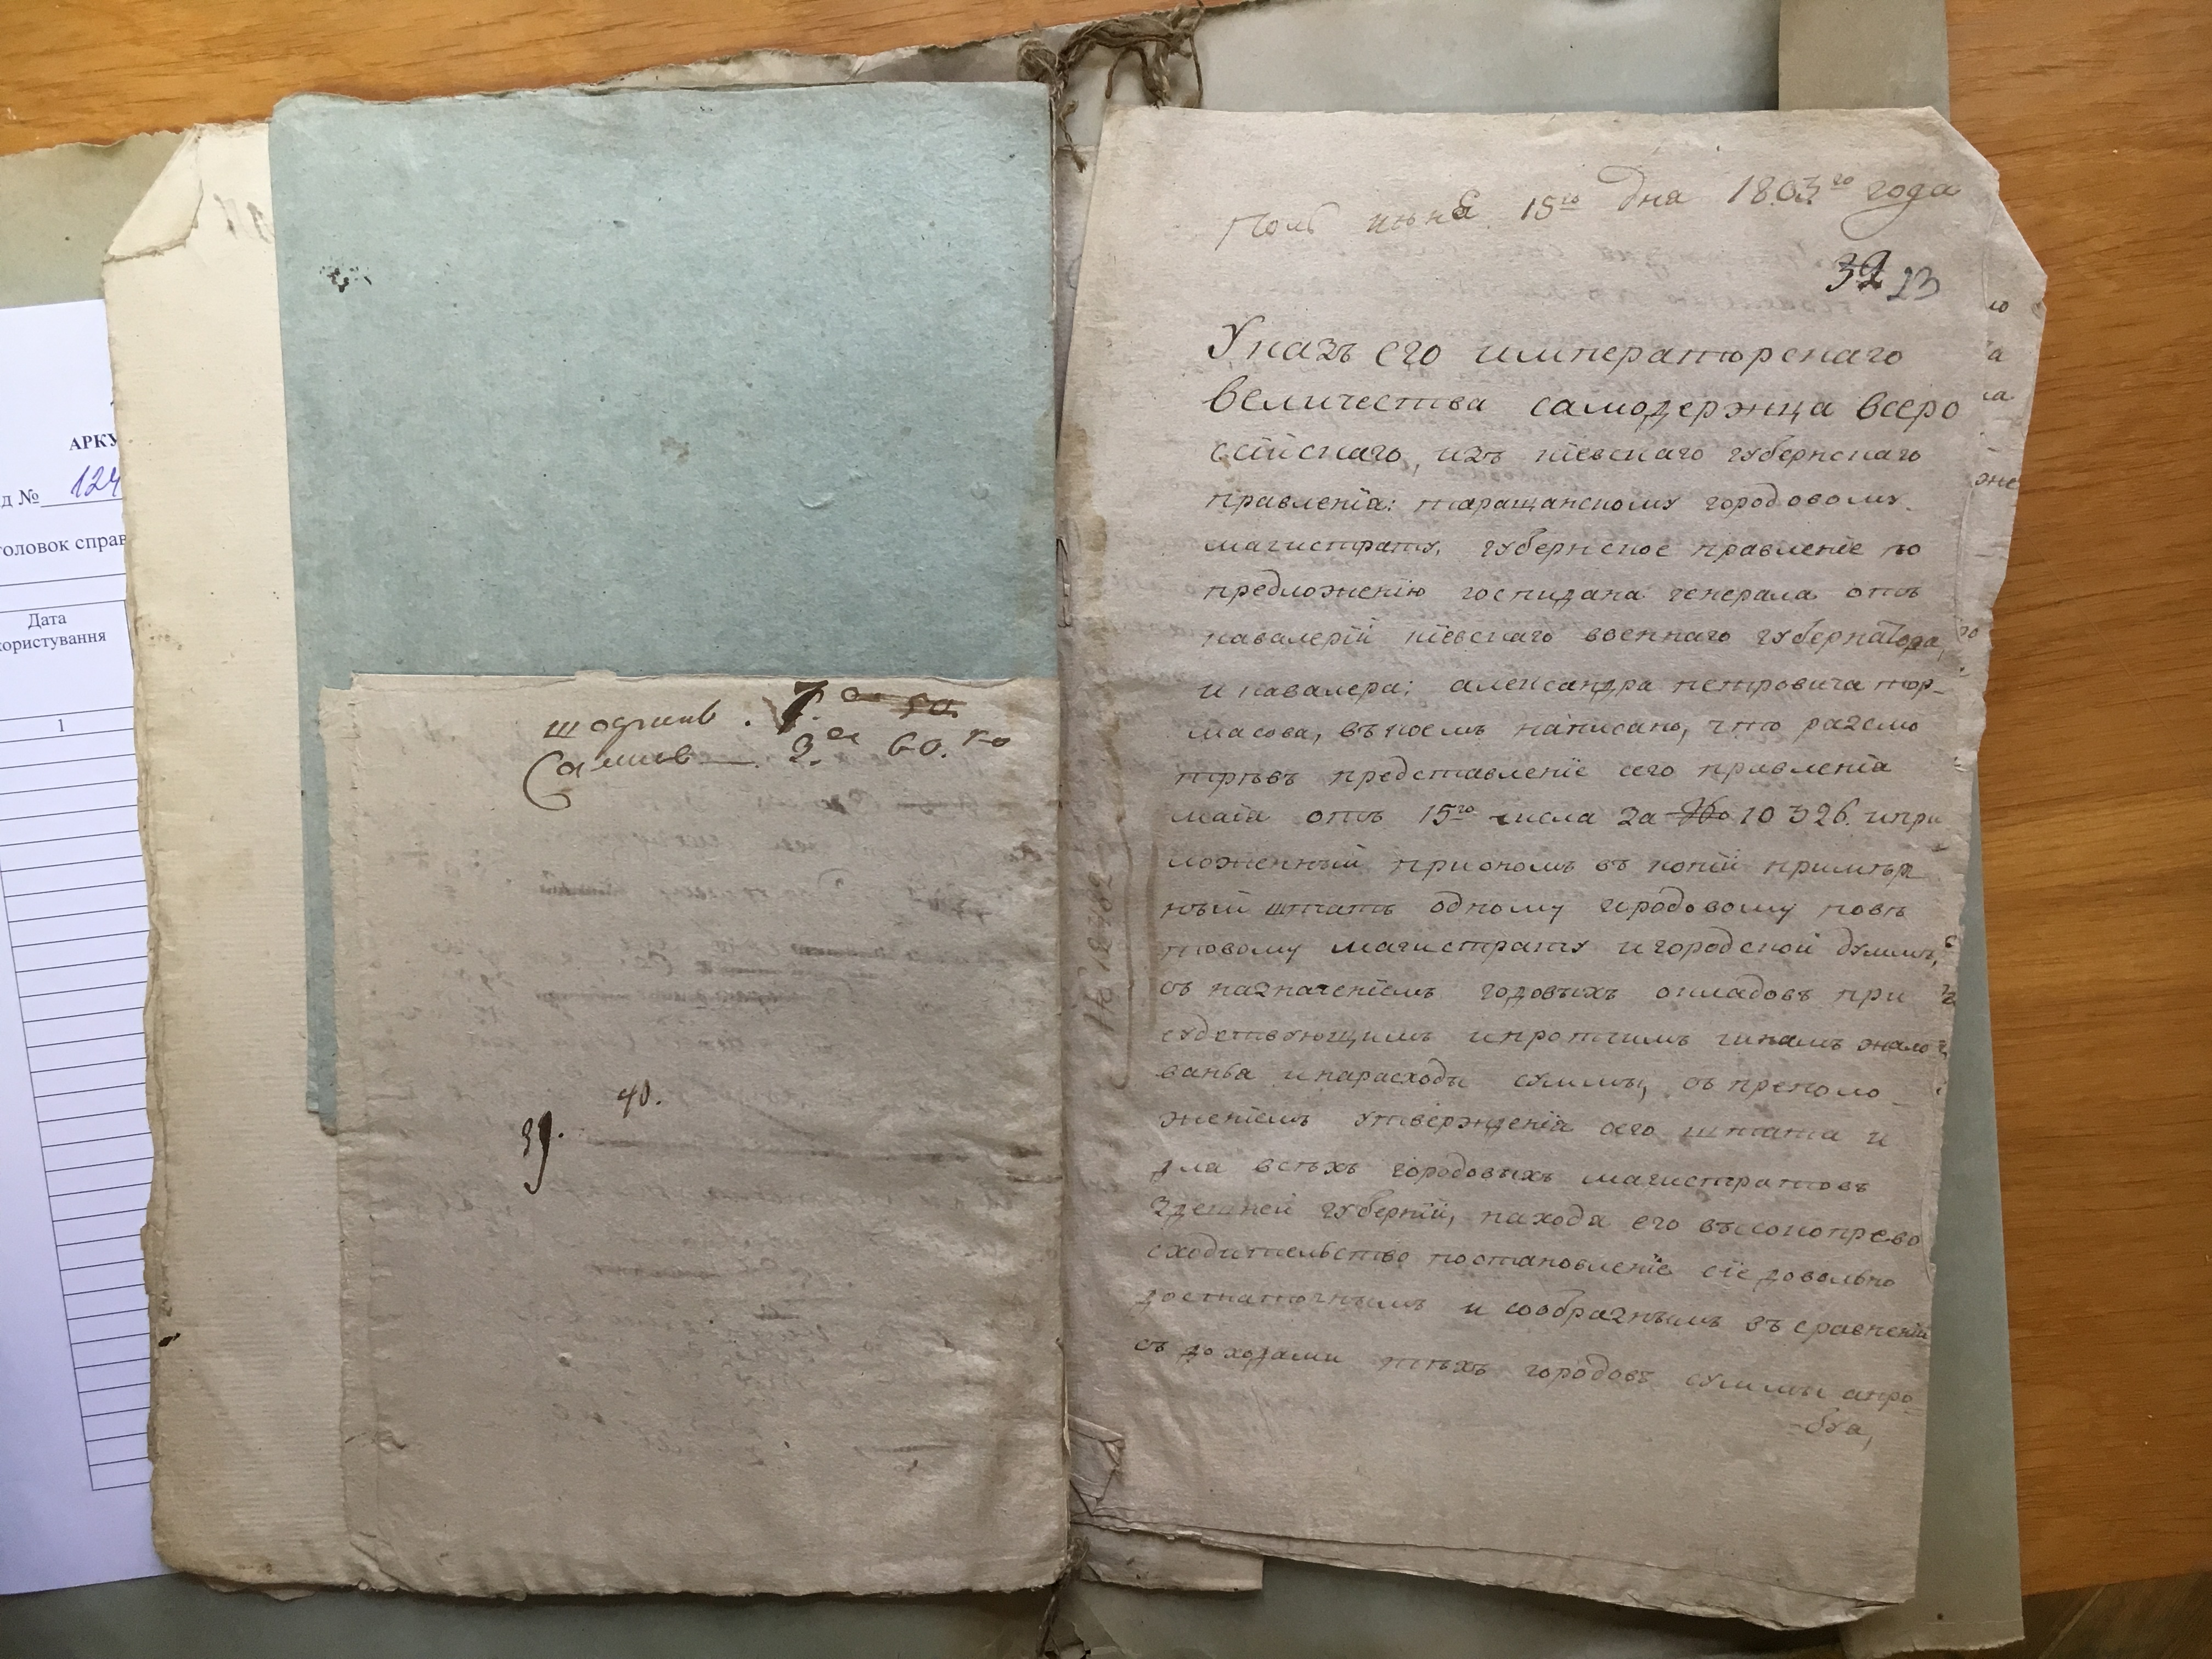 АРКУ
д № 124
головок справ
Дата
користування
1
7. 50.
3. 60. ко
40.
39.
№ 12782
Пол июня 15го дня 1803го года
32 23
Указъ его императорскаго
величества самодержца всеро
сїйскаго, изъ кїевскаго губернскаго
правленїя: таращанскому городовому
магистрату. губернское правленїе по
предложенїю господина генерала отъ
кавалерїй кїевскаго военнаго губернатора,
и кавалера: александра петровича тор-
масова, въ коемъ написано, что разсмо
трѣвъ представленїе сего правленїя
маїя отъ 15го числа за 10326. и при
ложенный при ономъ въ копїй примѣр
ный штатъ одному городовому повѣ
товому магистрату и городской думмѣ,
съ назначенїемъ годовыхъ окладовъ при
судствующимъ и протчимъ чинамъ жало
ванья и на расходы суммы, съ преполо-
женїемъ утвержденїя сего штата и
для всѣхъ городовыхъ магистратовъ
здешней губернїй, находя его высокопрево
сходительство постановленїе сїе довольно
достаточнымъ и сообразнымъ въ сравненїй
съ доходами тѣхъ городовъ суммы апро-
-буя,